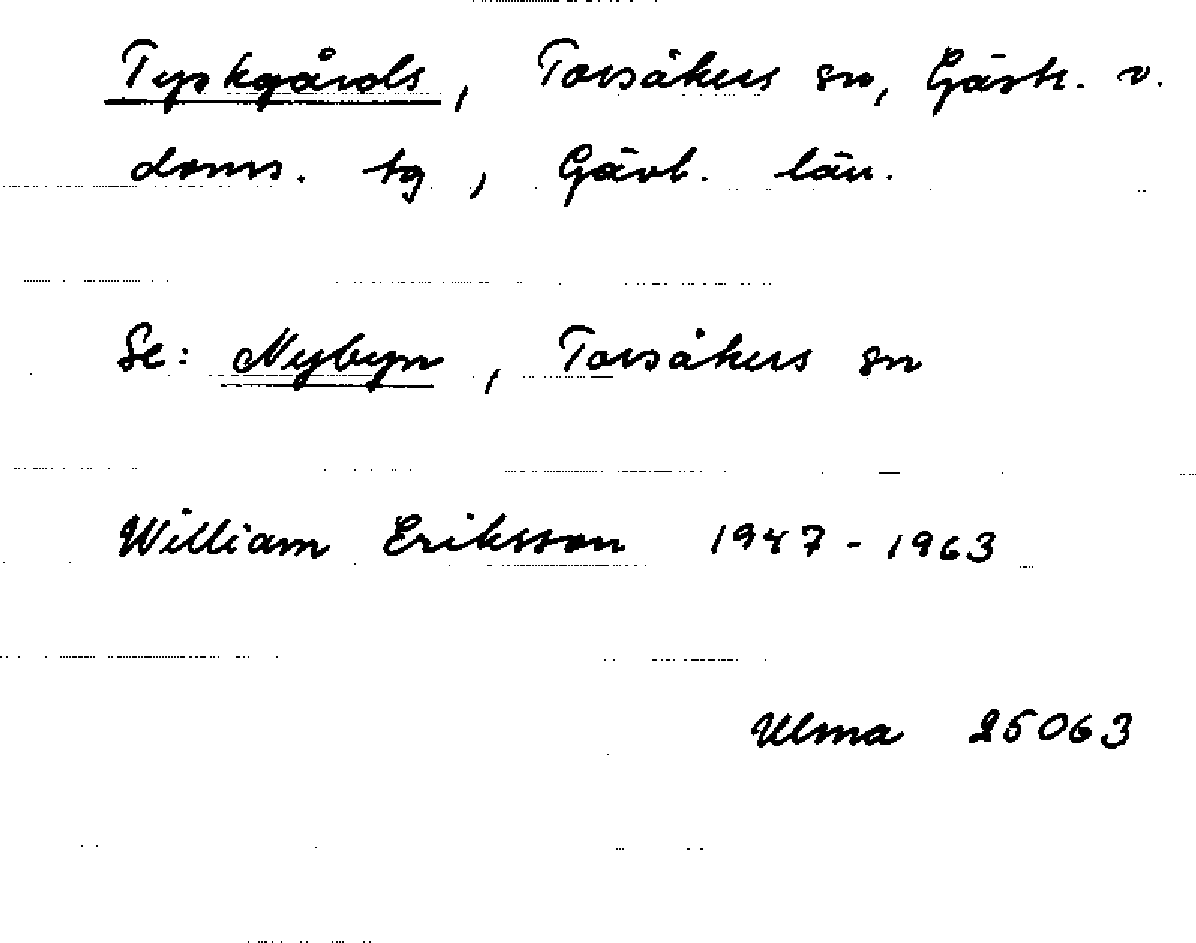 Tyskgårds, Torsåkers sn, Gästr. v.
doms. tg, Gävl. län.
Se: Nybyn, Torsåkers sn
William Eriksson 1947-1963
Ulma 25063